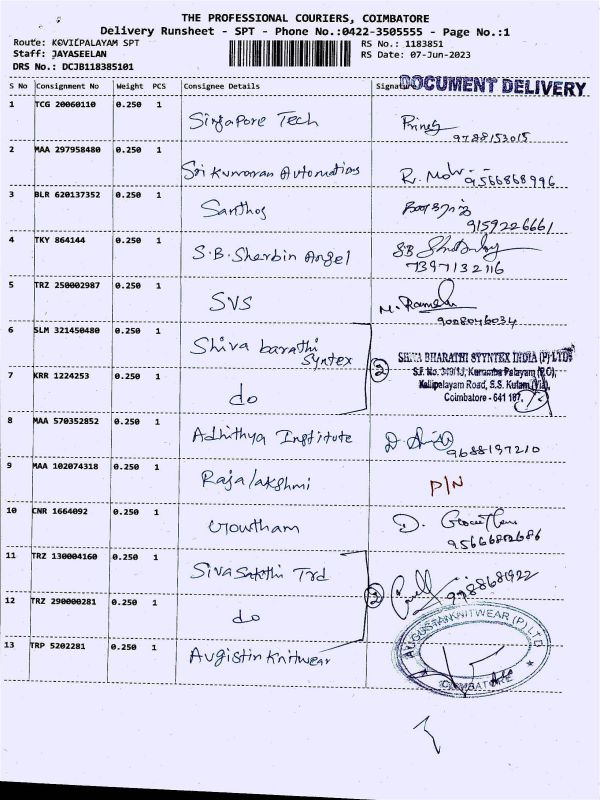 THE PROFESSIONAL COURIERS, COIMBATORE
Delivery Runsheet - SPT - Phone No.:0422-3505555 - Page No.:1
Route: KOVILPALAYAM SPT
Staff: JAYASEELAN
DRS No.: DCJB118385101
RS No.: 1183851
RS Date: 07-Jun-2023
S No Consignment No Weight PCS Consignee Details Signature
DOCUMENT DELIVERY
1 TCG 20060110 0.250 1 Singapore Tech
9788153015
2 MAA 297958480 0.250 1 Sri Kumaran Automations R.
9566868996
3 BLR 620137352 0.250 1 Santhos
9159226661
4 TKY 864144 0.250 1 S.B. Sherbin Angel SB
7397132116
5 TRZ 250002987 0.250 1 SVS M. Ramesh
9008046034
6 SLM 321450480 0.250 1 Shiva barathi Syntex
2
SHIVA BHARATHI SYYNTEX INDIA (P) LTD
Kallipalayam Road, S.S. Kulam (Via),
Coimbatore - 641 107.
7 KRR 1224253 0.250 1 do
8 MAA 570352852 0.250 1 Adhithya Institute D.
9688197210
9 MAA 102074318 0.250 1 Rajalakshmi P/N
10 CNR 1664092 0.250 1 Gowtham D. Gowtham
11 TRZ 130004160 0.250 1 Siva Sakthi Trd
2
9788681922
12 TRZ 290000281 0.250 1 do
13 TRP 5202281 0.250 1 Augistin Knitwear
AUGUSTAN KNITWEAR (P) LTD
COIMBATORE